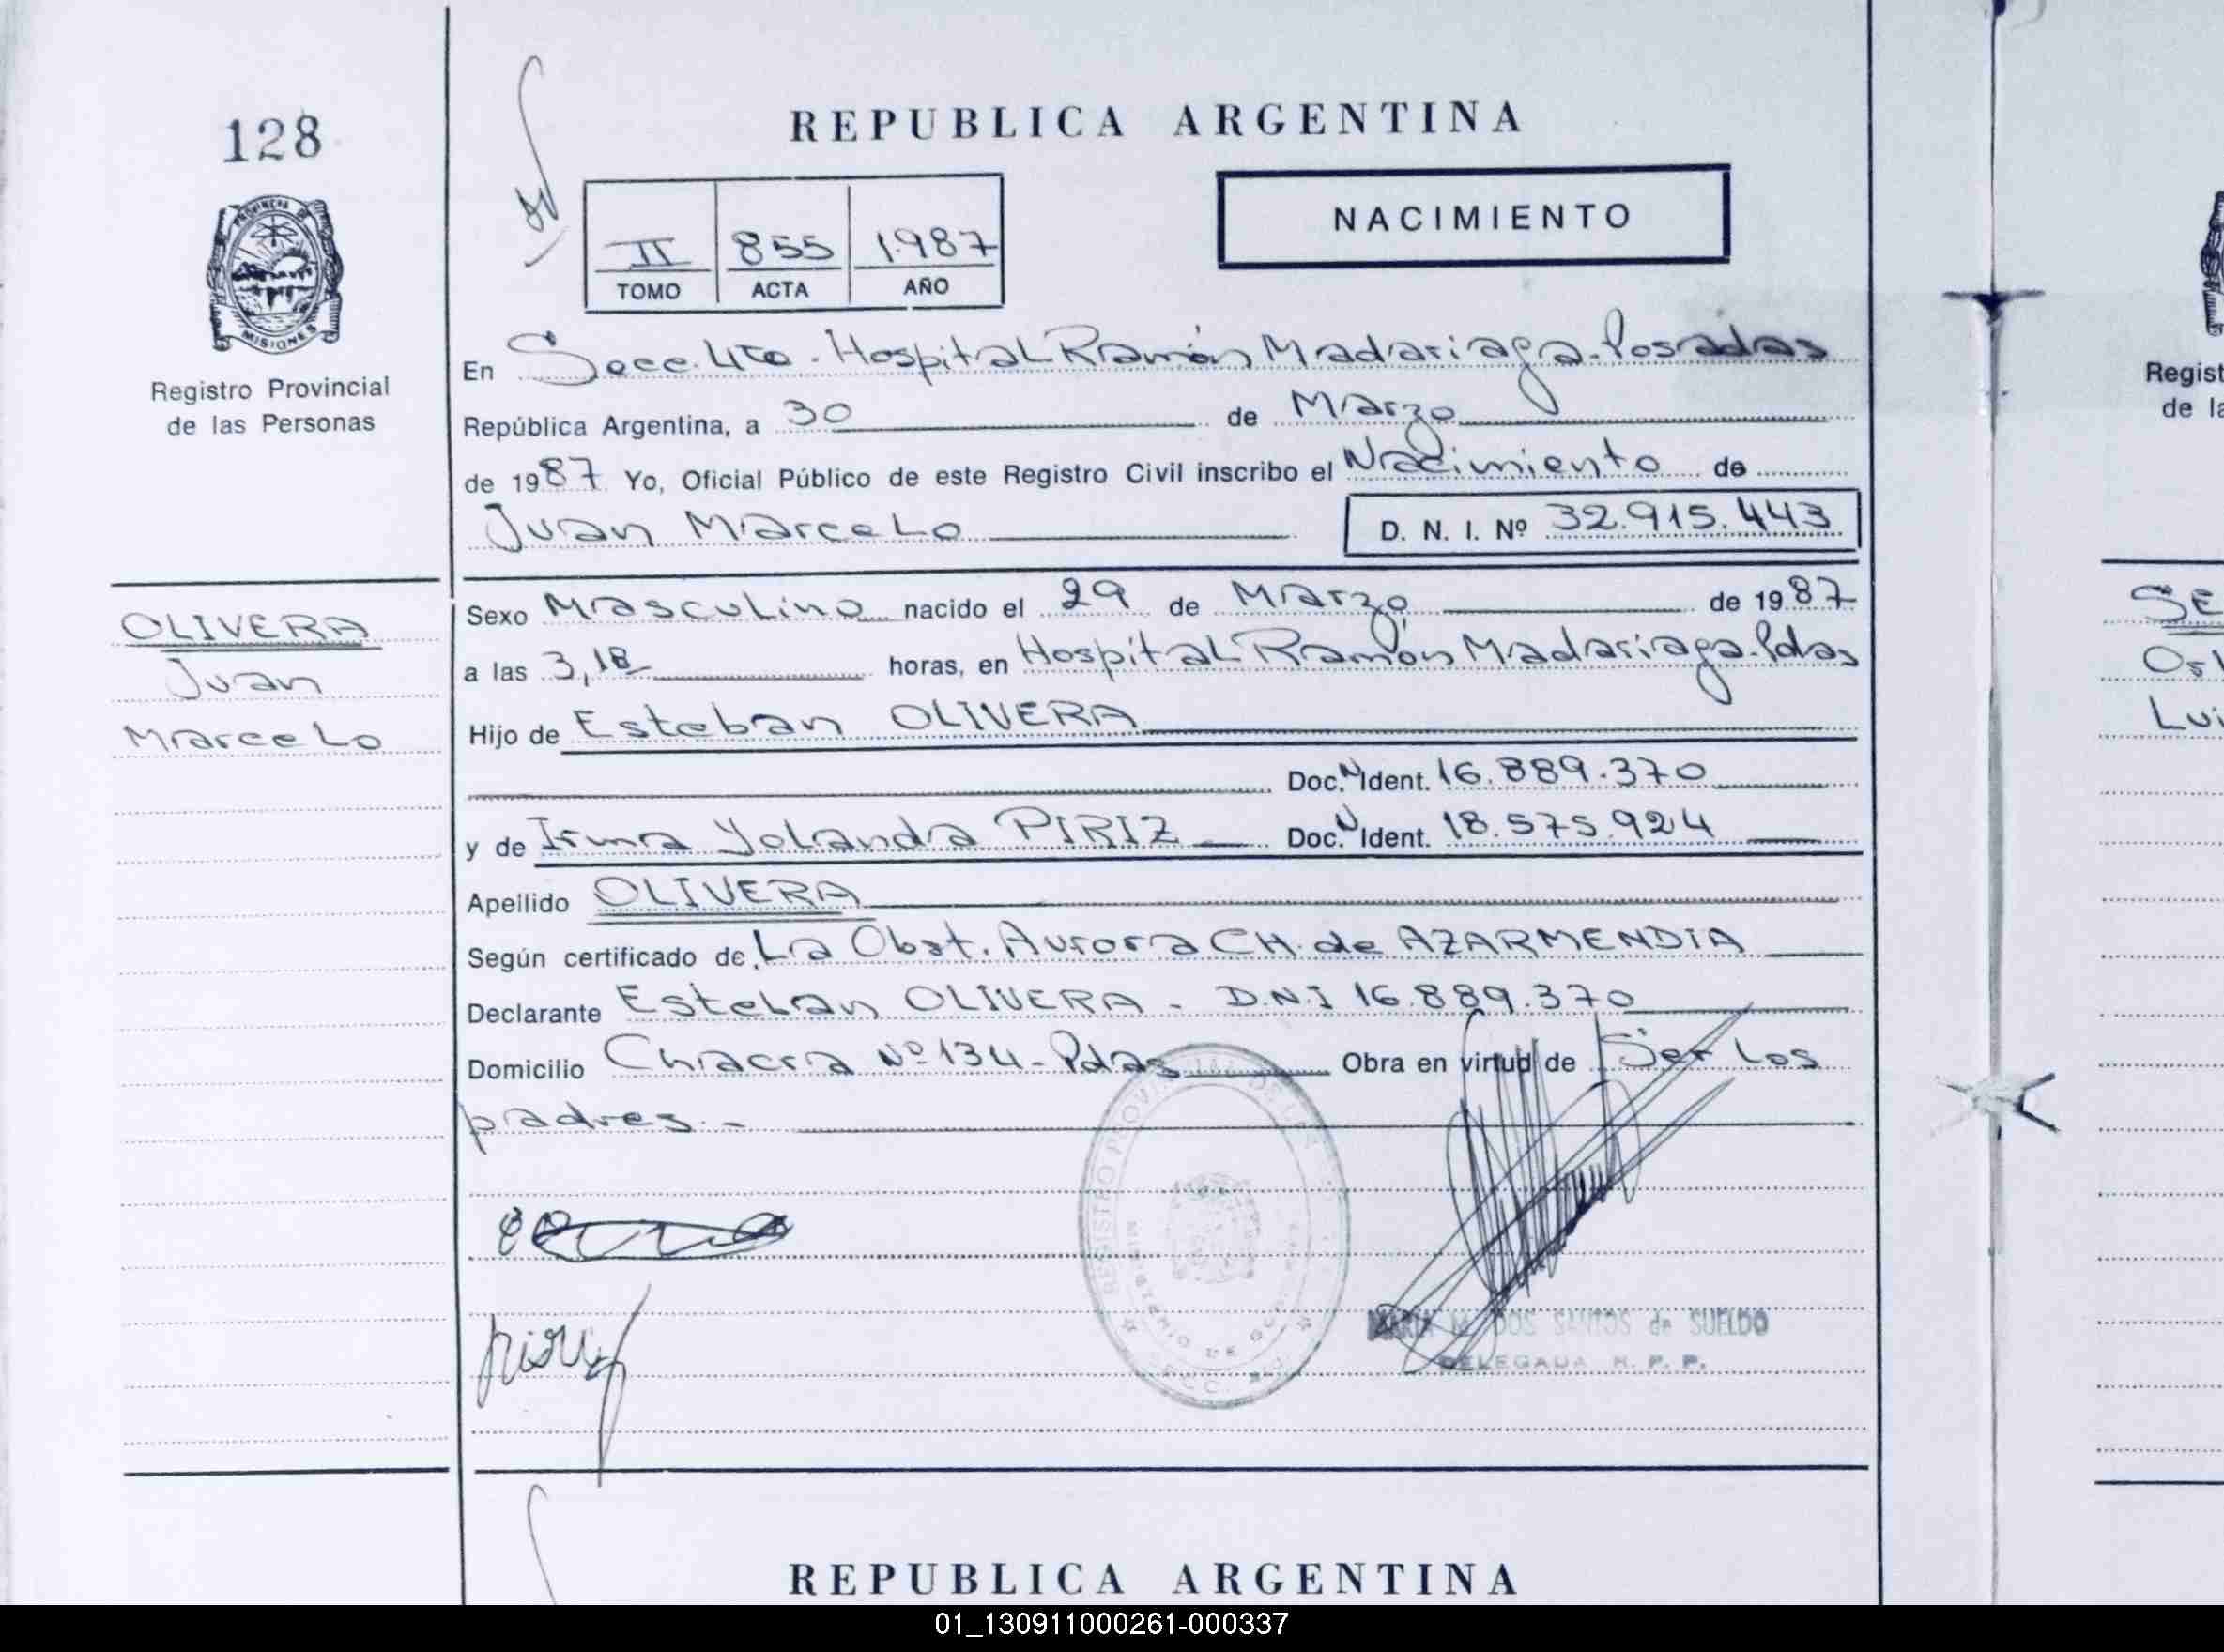 128
PROVINCIA DE
MISIONES
Registro Provincial
de las Personas
OLIVERA
Juan
Marcelo
REPUBLICA ARGENTINA
NACIMIENTO
II 855 1987
TOMO ACTA AÑO
En Secc. 4ta. Hospital Ramón Madariaga. Posadas
República Argentina, a 30 de Marzo
de 1987 Yo, Oficial Público de este Registro Civil inscribo el Nacimiento de
Juan Marcelo D. N. I. Nº 32.915.443
Sexo Masculino nacido el 29 de Marzo de 1987
a las 3,18 horas, en Hospital Ramón Madariaga. Pdas
Hijo de Esteban OLIVERA
Doc. N Ident. 16.889.370
y de Irma Yolanda PIRIZ Doc. N Ident. 18.575.924
Apellido OLIVERA
Según certificado de La Obst. Aurora CH. de AZARMENDIA
Declarante Esteban OLIVERA - D.N.I 16.889.370
Domicilio Chacra Nº 134 - Pdas Obra en virtud de Ser Los
padres. -
REGISTRO PROVINCIAL DE LAS
MINISTERIO DE
MARIA M. DOS SANTOS de SUELDO
DELEGADA R. P. P.
REPUBLICA ARGENTINA
Regist
de la
SE
Os
Lui
01_130911000261-000337